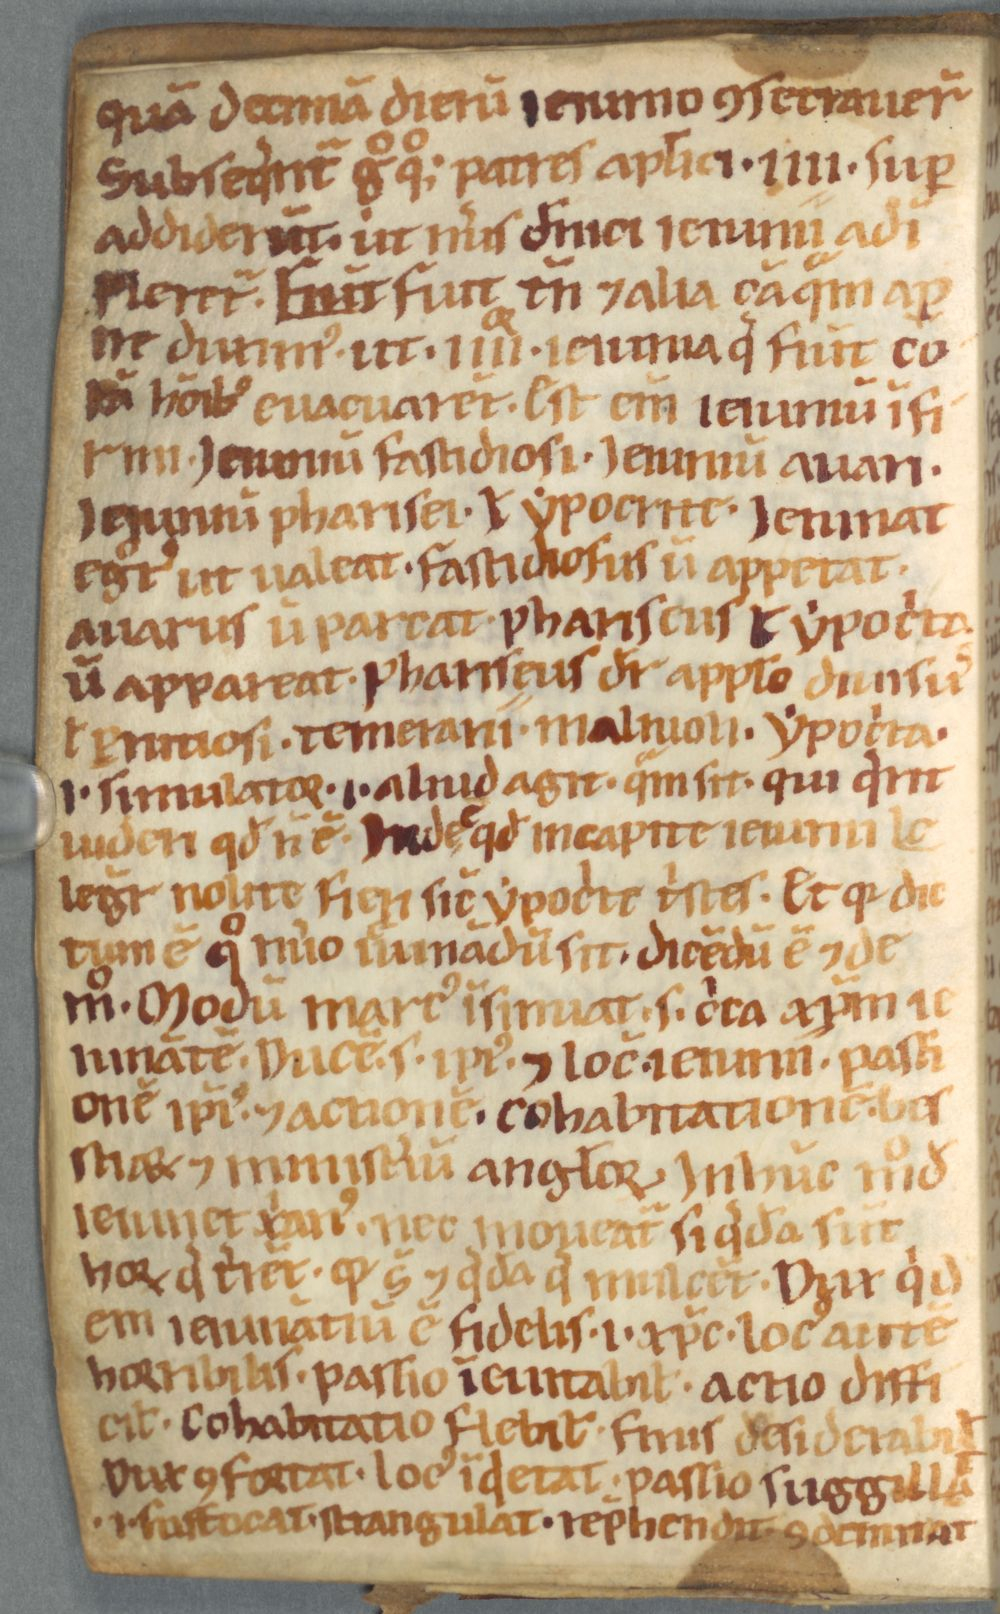 quā decimā dierū ieiunio ꝯsecrauer̄
Subseq̄nt̄ gͦ qͦꝫ patres apl̄ici · IIII · suꝑ
addiderūt · ut nr̄is dn̄ici ieiunii adī
pleret̄ · sūt tn̄ ⁊ alia
uit · IIIIor · ieiunia q̄ sūt cō
hōibꝰ euacuarēt · Est eīm ieiuniū īfi
rmi · Ieiuniū fastidiosi · Ieiuniū auari ·
Ieiuniū pharisei · ł ẏpocrite · Ieiunat
egrꝰ ut ualeat · fastidiosus ū appetat ·
auarus ū parcat · phariseus ł ẏpocͥta
ū appareat · Phariseus dr̄ appło diuisuꝰ
ł ꝑnitiosi · temerarii · maliuoli · ẏpocͥta ·
·i· simulator · ·i· aliud agit · qͣm sit · qui qͥrit
uideri qđ ñ ē · Inde qđ in capite ieiunii le
legr̄ nolite fieri sic̄ ẏpocͥte tͥstes · Et qr dic
tum ē qͦ iunādū sit · dicēdū ē ⁊ de
mͦ · Modū marcꝰ īsinuat · s · cͥca xp̄m ie
iunātē · Ducē · s · ip̄iꝰ · ⁊ locū · ieiunii · passi
onē ip̄iꝰ · ⁊ actionē · cohabitationē · bes
tiaꝝ ⁊ ministͥū angloꝝ · In hūc mͦđ
ieiunet xͥanꝰ · nec moueat̄ si qͥda sūt
hoꝝ q̄ tr̄rēt · qr s̄ ⁊ qͥda q̄ mulcēt · Dux qͥd
em ieiunātiū ē fidelis · ·i· xp̄c · locꝰ autē
horribilis · passio ieuitabił · actio diffi
cił · Cohabitatio flebił · finis desiderabił
Dux ꝯfortat · locꝰ īdetat · passio suggillat
· ·i· suffocat · strangulat · rep̄hendit · ꝯdemnat